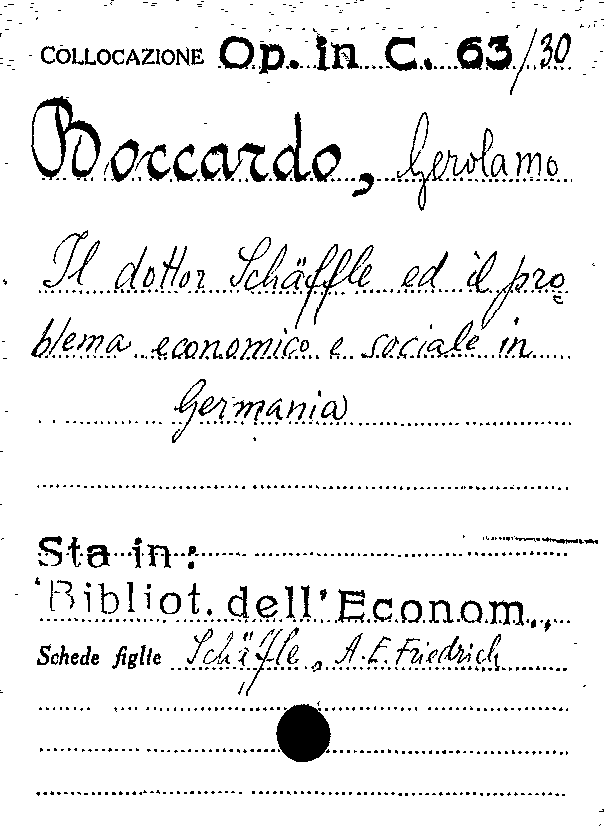 COLLOCAZIONE Op. in C. 63/30
Boccardo, Gerolamo
Il dottor Schäffle ed il pro
blema economico e sociale in
Germania
Sta in:
'Bibliot. dell'Econom.,,
Schede figlie Schäffle, A. E. Friedrich